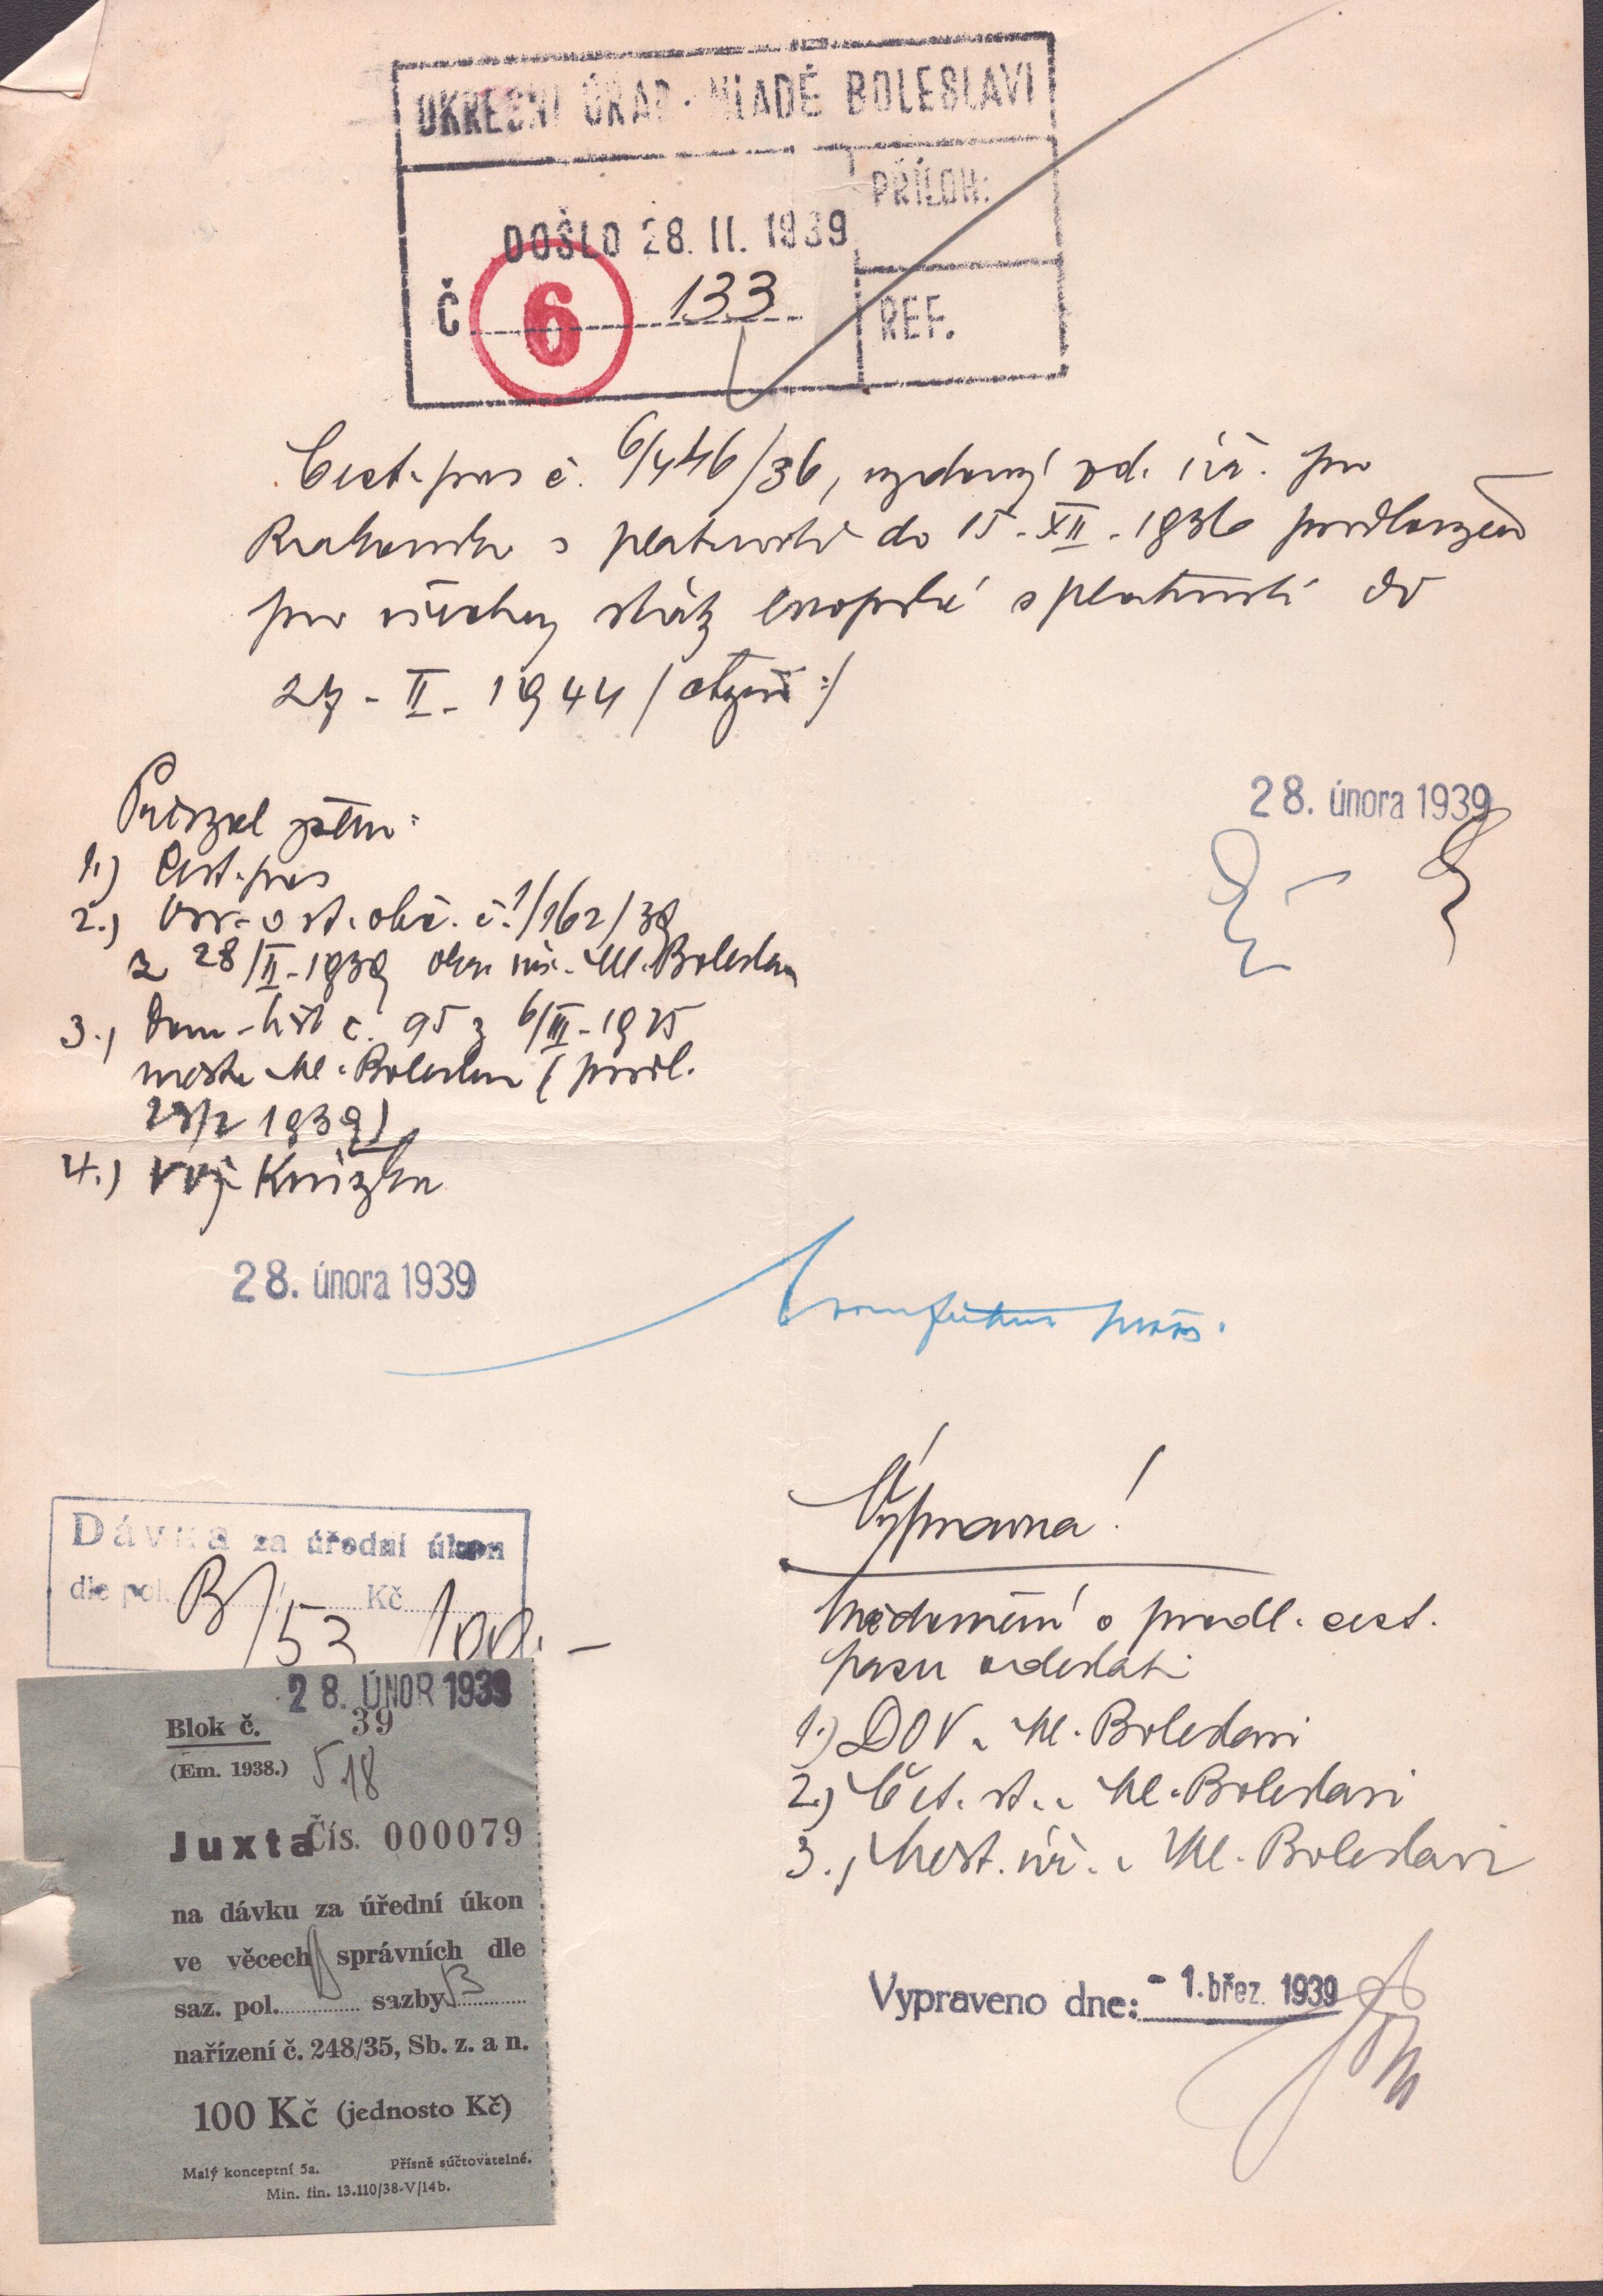 OKRESNÍ ÚŘAD MLADÉ BOLESLAVI
PŘÍLOH:
DOŠLO 28. II. 1939
Č 6 133
REF.
Cest. pas č. 6/446/36, vydaný od. úř. pro
s platností do 15-XII-1936 prodloužen
pro všechny státy evropské s platností do
27-II-1944
28. února 1939
Průkaz
1.) Cest. pas
2.) Osv. o st. obč. č. 1/162/39
z 28/II-1939 okr. úř. Ml. Boleslav
3., Dom. list č. 95 z 6/III-1925
města Ml. Boleslav (prodl.
1939)
4.) Voj. Knížka
28. února 1939
Výpravna!
Dávka za úřední úkon
dle pol. B/53 Kč 100.-
Vědomění o prodl. cest.
pasu odeslati
1.) DOV v Ml. Boleslavi
2.) Čet. st. v Ml. Boleslavi
3., Měst. úř. v Ml. Boleslavi
28. ÚNOR 1939
Blok č. 39
(Em. 1938.) 518
Juxta Čís. 000079
na dávku za úřední úkon
ve věcech správních dle
saz. pol. sazby B
nařízení č. 248/35, Sb. z. a n.
100 Kč (jednosto Kč)
Malý konceptní 5a. Přísně súčtovatelné.
Min. fin. 13.110/38-V/14b.
Vypraveno dne: - 1. břez. 1939